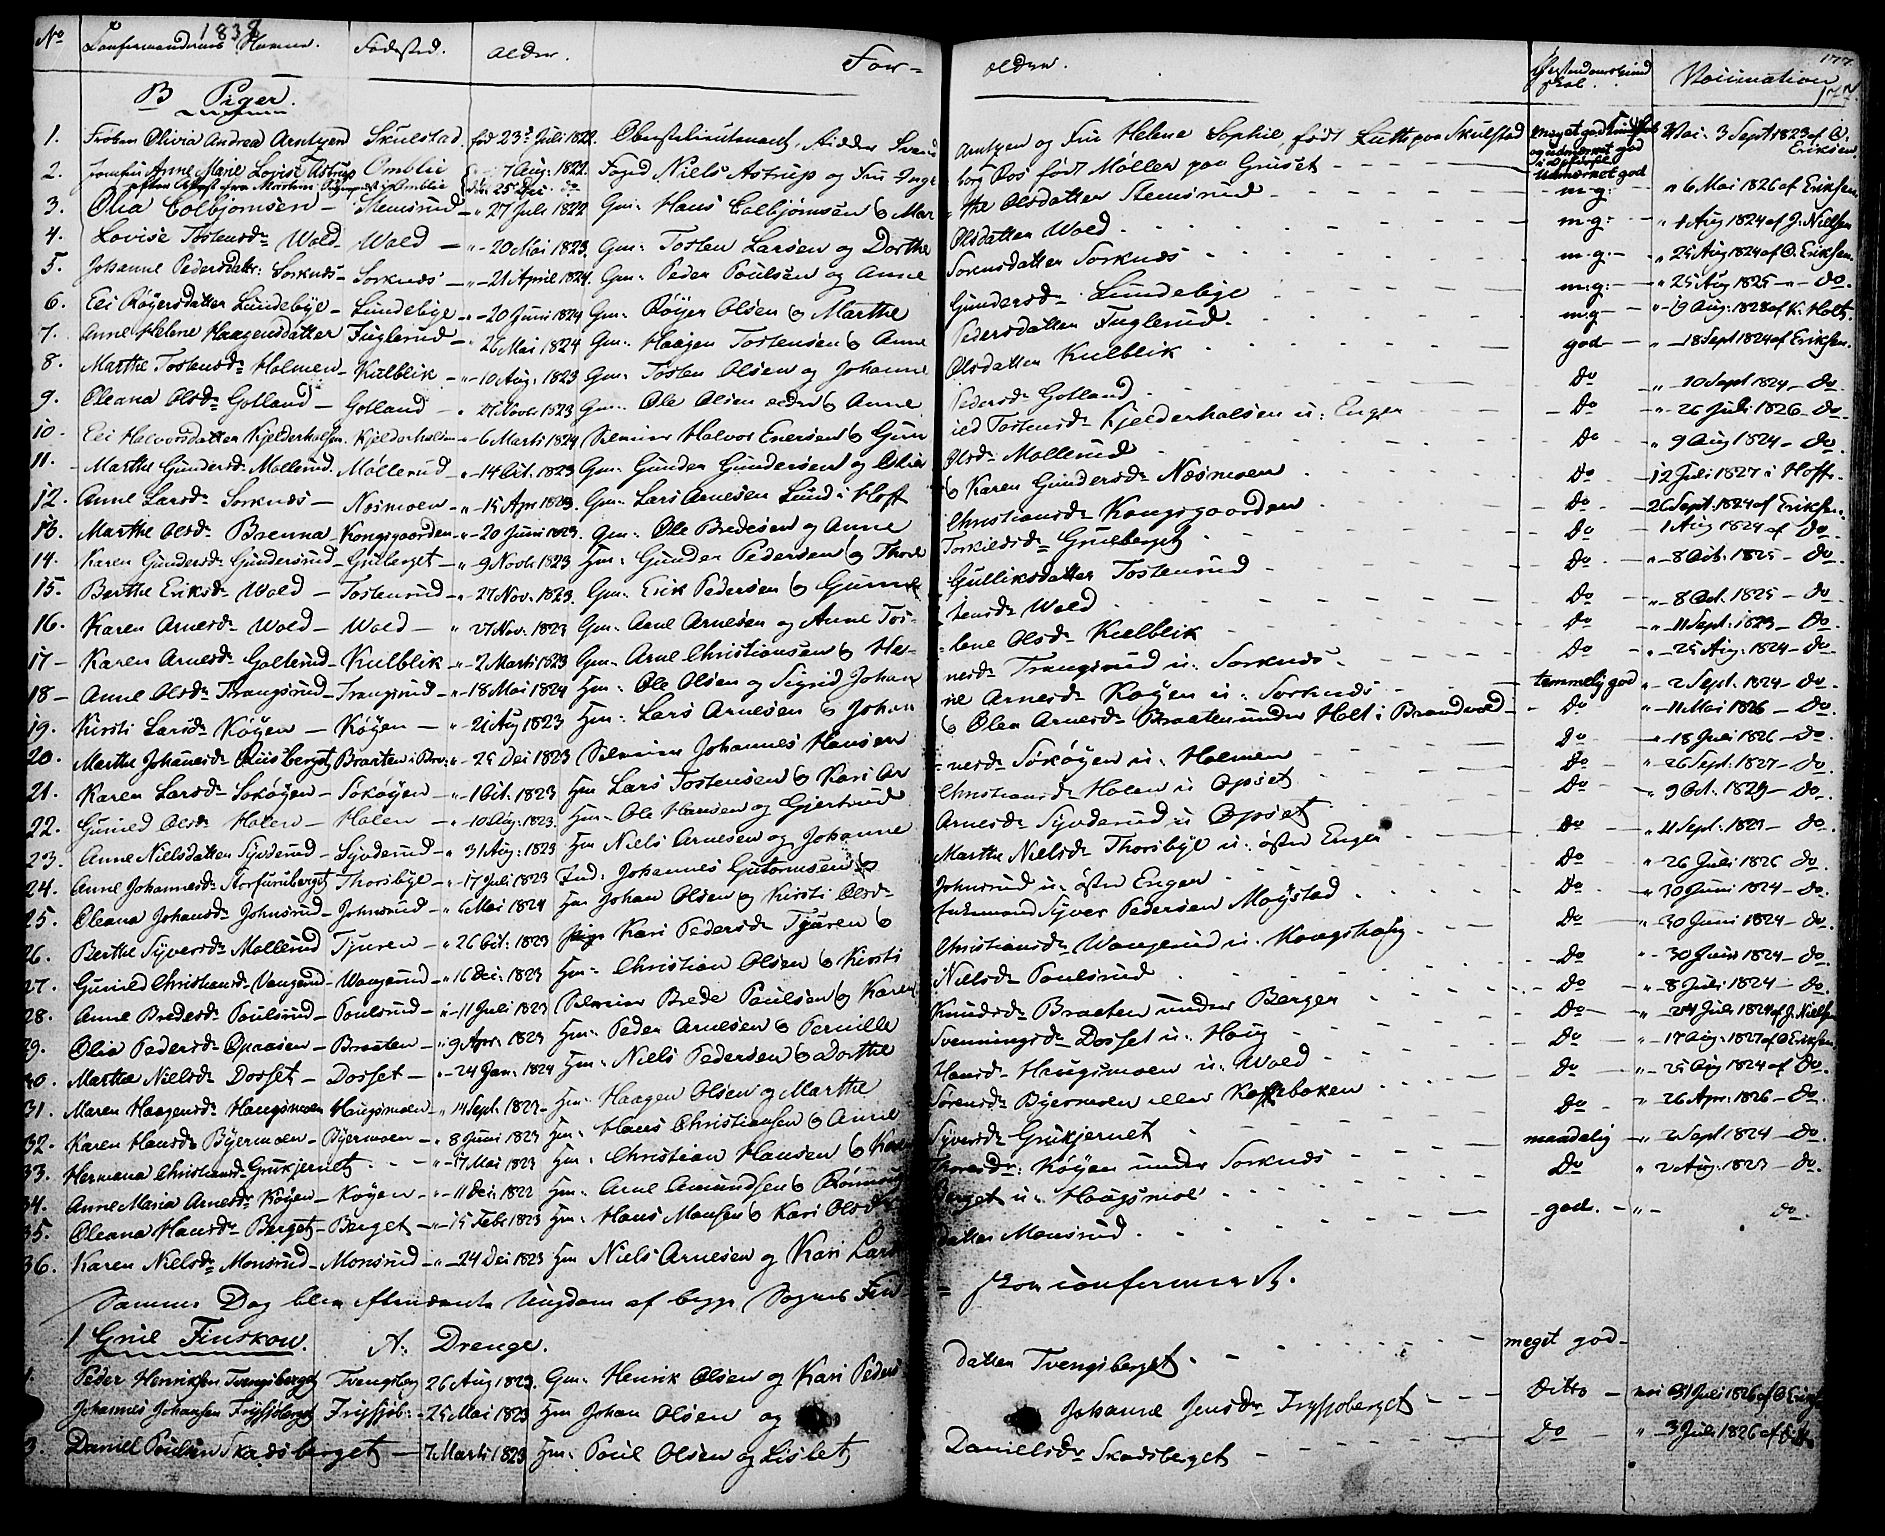 1838
No Confirmandernes Navne. Fødested. Alder. For- ældre. Kundskab. Vaccination 177
B Piger.
1. Frøken Olivia Andrea Arntzen Skulstad. fød 23de Juli 1822. Oberstlieutenant, Ridder Svend Arntzen og Fru Helene Sophie, født Lütt paa Skulstad Meget god Vac: 3 Sept 1823 af O. Eriksen
2. Jomfru Anne Marie Lovise Astrup Omblie 7 Aug: 1822. Foged Niels Astrup og Fru Inge borg Ros født Møller paa Gruset Udmerket god
3. Olia Colbjørnsen Stemsrud " 27 Juli 1822 Gm: Hans Colbjørnsen & Mar the Olsdatter Stemsrud m-g: " 6 Mai 1826 af Eriksen
4. Lovise Tostensdr Wold Wold " 20 Mai 1823 Gm: Tosten Larsen og Dorthe Olsdatter Wold m-g: " 1 Aug 1824 af J. Nielsen
5. Johanne Pedersdatr: Sorknæs Sorknæs " 21 April 1824. Gm: Peder Poulsen og Anne Sorknæs m-g: " 25 Aug 1824 af O. Eriksen.
6. Eli Røyersdatter Lundebye Lundebye " 20 Juni 1824 Gm: Røyer Olsen & Marthe Gundersdr Lundebye m-g: " 25 Aug 1825 Do.
7. Anne Helene Haagensdatter Fuglerud " 26 Mai 1824 Gm: Haagen Tostensen & Anne Pedersdatter Fuglerud. m-g " 19 Aug: 1828 af K. Holt.
8. Marthe Tostensdr Holmen Kulblik " 10 Aug: 1823 Gm: Tosten Olsen og Johanne Olsdatter Kulblik god " 18 Sept 1824 af Eriksen.
9. Oleana Olsdr Gotland Gotland " 21 Novb 1823 Gm: Ole Olsen ældre & Anne Pedersdr Gotland. Do " 10 Sept 1824 Do
10. Eli Halvorsdatter Kjelderholsen Kjelderholsen " 6 Marti 1824 Selveier Halvor Enersen & Gun ild Tostensdr Kjelderholsen u: Enger Do " 26 Juli 1826 Do
11. Marthe Gundersdr Mollerud. Møllerud " 14 Oct. 1823 Gm: Gunder Gundersen og Olsdr Mollerud Do " 9 Aug 1824 Do
12. Anne Larsdr Sorknæs Næsmoen " 15 Apr 1823. Gm: Lars Arnesen Lund i Hoff & Karen Gundersdr Næsmoen Do 12 Juli 1827 i Hoff.
13. Marthe Olsdr Brenna Kongsgaarden " 20 Juni 1823. Gm: Ole Bredesen og Anne Christiansdr Kongsgaarden Do 26 Sept. 1824 af Eriksen.
14. Karen Gundersdr Gundersrud Gruberget " 9 Novb 1823 Hm: Gunder Pedersen & Thore Torkildsdr Gruberget Do 1 Aug 1824 af Do
15. Berthe Eriksdr Wold Tostenrud " 27 Nov. 1823. Gm: Erik Pedersen & Gunnel Gulliksdatter Tostenrud Do " 8 Oct. 1825 Do
16. Karen Arnesdr Wold Wold " 27 Nov. 1823 Gm: Arne Arnesen og Anne Tos- tensdr Wold Do " 8 Oct. 1825 Do
17 Karen Arnesdr Gollerud Kulblik " 2 Marti 1823 Gm: Arne Christiansen & He- lene Olsdr Kulblik Do " 11 Sept: 1823 Do
18 Anne Olsdr Trangsrud Trangsrud " 18 Mai 1824 Hm: Ole Olsen og Sigrid Johan nesdr Trangsrud u: Sorknæs Do " 25 Aug: 1824 Do
19. Kirsti Larsdr Køyen Køyen " 21 Aug 1823 Hm: Lars Arnesen & Johan ne Arnesdr Køyen u: Sorknæs temmelig god " 2 Sept. 1824 Do
20. Marthe Johannesdr Braaten i Bra: " 25 Dec 1823 Selveier Johannes Hansen & Olea Arnesdr Braaten under Holt i Brandvold Do " 11 Mai 1826 Do
21. Karen Larsdr Sokøyen Sokøyen " 1 Oct. 1823 Hm Lars Tostensen & Kari Ar nesdr Sökøyen u: Holmen Do " 18 Juli 1826 Do
22. Gunild Olsdr Holen Holen " 10 Aug: 1823. Hm: Ole Hansen og Gjertrud Christiansdr Holen u: Opset Do " 26 Sept. 1827 Do
23. Anne Nielsdatter Syvderud Syvderud " 31 Aug: 1823 Hm Niels Arnesen og Johanne Arnesdr Syvderud u: Opset Do " 9 Oct. 1829 Do
24. Anne Johannesdr Storfuruberget Thorsbye " 17 Juli 1823 Ind: Johannes Gutormsen & Marthe Nielsdr Thorsbye u: østre Enger Do " 11 Sept: 1823 Do
25. Oleana Johansdr Johnsrud Johnsrud " 6 Mai 1824 Hm Johan Olsen & Kirsti Olsdr Johnsrud u: østre Enger Do " 26 Juli 1826 Do
26. Berthe Syversdr Mollerud Tjuren " 26 Oct. 1823 Pige Kari Pedersdr Tjuren & Syver Pedersen Møystad Do " 30 Juni 1824 Do
27. Gunild Christiansdr Wangerud Wangerud " 16 Dec. 1823 Hm: Christian Olsen & Kirsti Christiansdr Wangerud u: Kongshoug Do " 30 Juni 1824 Do
28. Anne Bredesdr Poulsrud Poulsrud " 11 Juli 1823 Selveier Brede Poulsen & Karen Nielsdr Poulsrud Do " 30 Juni 1824 Do
29. Olia Pedersdr Opaasen Braaten " 9 Apr. 1823 Hm: Peder Arnesen & Pernille Knudsdr Braaten under Berger Do " 8 Juli 1824 Do.
30. Marthe Nielsdr Dosset Dosset " 24 Jan: 1824 Hm: Niels Pedersen & Dorthe Svenningsdr Dosset u: Houg Do " 24 Juli 1824 af J. Nielsen
31. Maren Haagensdr Haugsmoen Haugsmoen " 14 Sept. 1823 Hm: Haagen Olsen og Marthe Hansdr Haugsmoen u: Wold Do " 17 Aug: 1827 af O Eriksen
32. Karen Hansdr Byermoen Byermoen " 8 Juni 1823 Hm: Hans Christiansen & Anne Sørensdr Byermoen eller Kaffebakken Do " 25 Aug 1824 af Do
33. Hermana Christiansdr Grukjernet " 17 Mai 1823 Hm: Christian Hansen & Kari Syversdr Grukjernet Do " 26 Apr: 1826 Do
34. Anne Maria Arnesdr Køyen Køyen " 11 Dec. 1822 Hm: Arne Amundsen & Thoresdr: Køyen under Sorknæs maadelig " 2 Sept 1824 Do
35. Oleana Hansdr Berget Berget " 15 Febr 1823 Hm: Hans Monsen & Kari Olsdr Berget u: Haugsmoe Do " 2 Aug: 1823 Do
36. Karen Nielsdr Monsrud Monsrud " 24 Dec 1823 Hm Niels Arnesen og Kari Lars datter Monsrud god. " Do.
Samme Dag blev efternævnte Ungdom af begge Sognes Fin = skov confirmeret.
1 Grue Finskov. A: Drenge.
1. Peder Henriksen Tvengsberget Tvengsberg 26 Aug 1823. Gm: Henrik Olsen og Kari Peders datter Tvengsberget. meget god
Johannes Johansen Frysjøberget Frysjøb: 25 Mai 1823 Hm Johan Olsen og Johanne Jensdr Frysjoberget Ditto vac 31 Juli 1826 af O Eriksen
3. Daniel Poulsen Skadsberget 7 Marti 1823 Hm: Poul Olsen og Lisbet Danielsdr Skadsberget Do " 3 Juli 1826 af Ditto